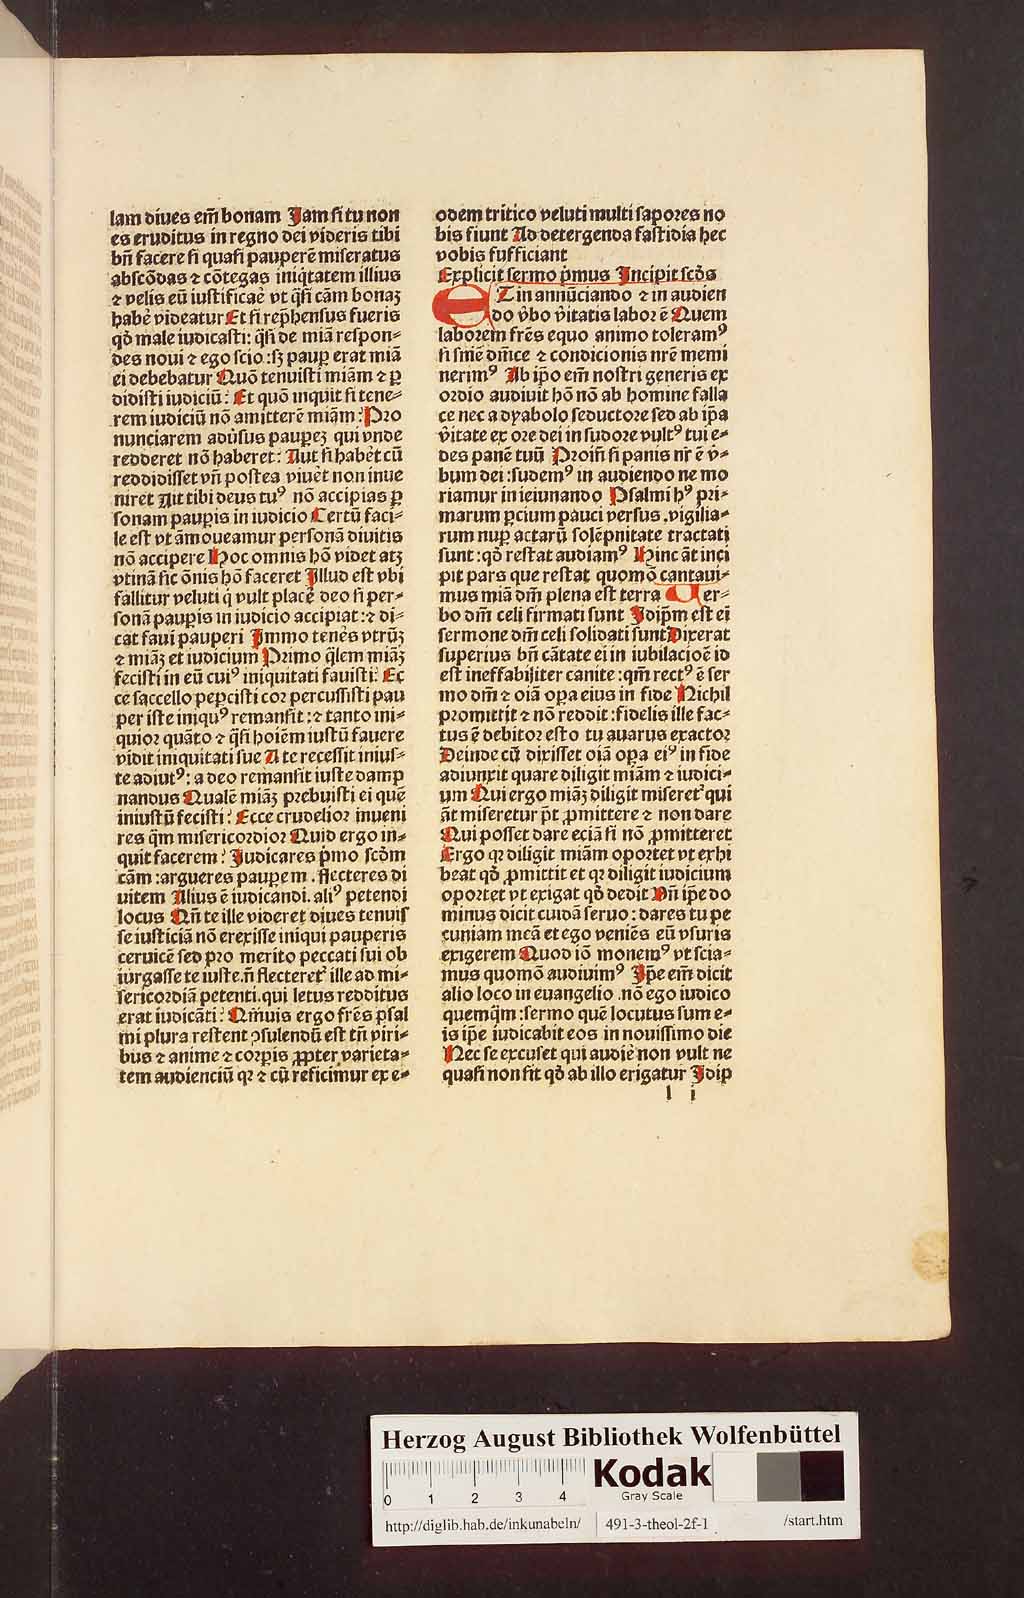 lam diues em̄ bonam Jam si tu non
es eruditus in regno dei videris tibi
bn̄ facere si quasi pauperē miseratus
abscōdas ⁊ cōtegas iniq̇tatem illius
⁊ velis eū iustificaē vt q̄si cām bonaʒ
habē videatur Et si rep̄hensus fueris
qđ male iudicasti: q̄si de miā respon-
des noui ⁊ ego scio :sʒ paup̲ erat miā
ei debebatur Quō tenuisti miām ⁊ p̲
didisti iudiciū: Et quō inquit si tene-
rem iudiciū nō amitterē miām: Pro
nunciarem adūsus paup̲eʒ qui vnde
redderet nō haberet: Aut si habēt cū
reddidisset vn̄ postea viuēt non inue
niret Ait tibi deus tuꝰ nō accipias p̲
sonam paup̲is in iudicio Certū faci-
le est vt āmoueamur personā diuitis
nō accipere Hoc omnis hō videt atʒ
vtinā sic ōnis hō faceret Jllud est vbi
fallitur veluti q̇ vult placē deo si per-
sonā paup̲is in iudicio accipiat :⁊ di-
cat faui pauperi Jmmo tenēs vtrūʒ
⁊ miāʒ et iudicium Primo q̄lem miāʒ
fecisti in eū cuiꝰ iniquitati fauisti: Ec
ce saccello pep̲cisti cor percussisti pau
per iste iniquꝰ remansit :⁊ tanto ini-
quior quāto ⁊ q̄si hoiēm iustū fauere
vidit iniquitati sue A te recessit inius-
te adiutꝰ: a deo remansit iuste damp
nandus Qualē miāʒ prebuisti ei quē
iniustū fecisti: Ecce crudelior inueni
res q̄m misericordior Quid ergo in-
quit facerem: Judicares p̄mo scđm
cām :argueres paup̲em .flecteres di
uitem Alius ē iudicandi. aliꝰ petendi
locus Qn̄ te ille videret diues tenuis
se iusticiā nō erexisse iniqui pauperis
ceruicē sed pro merito peccati sui ob
iurgasse te iuste.n̄ flecteretᷣ ille ad mi-
sericordiā petenti .qui letus redditus
erat iudicāti: Qm̄uis ergo frēs p̲sal
mi plura restent ꝯsulendū est tn̄ viri-
bus ⁊ anime ⁊ corp̲is ꝓpter varieta-
tem audienciū qꝛ ⁊ cū reficimur ex e-
odem tritico veluti multi sapores no
bis fiunt Ad detergenda fastidia hec
vobis sufficiant
Explicit sermo p̄mus Jncipit scđs
ET in annūciando ⁊ in audien
do v̄bo v̄itatis labor ē Quem
laborem frēs equo animo toleramꝰ
si snīe dnīce ⁊ condicionis nrē memi
nerimꝰ Ab ip̄o em̄ nostri generis ex
ordio audiuit hō nō ab homine falla
ce nec a dyabolo seductore sed ab ip̄a
v̄itate ex ore dei in sudore vultꝰ tui e-
des panē tuū Proin̄ si panis nr̄ ē v̄-
bum dei :sudemꝰ in audiendo ne mo
riamur in ieiunando Psalmi hꝰ pri-
marum p̲cium pauci versus .vigilia-
rum nup̲ actarū solēpnitate tractati
sunt :qđ restat audiamꝰ Hinc āt inci
pit pars que restat quomō cantaui-
mus miā dn̄i plena est terra Uer-
bo dn̄i celi firmati sunt Jdip̄m est ei
sermone dn̄i celi solidati sunt Dixerat
superius bn̄ cātate ei in iubilacioē id
est ineffabiliter canite :qm̄ rectꝰ ē ser
mo dn̄i ⁊ oiā oṗa eius in fide Nichil
promittit ⁊ nō reddit :fidelis ille fac-
tus ē debitor esto tu auarus exactor
Deinde cū dixisset oiā oṗa eiꝰ in fide
adiunxit quare diligit miām ⁊ iudici-
um Qui ergo miāʒ diligit miseretᷣ qui
āt miseretur p̄t ꝓmittere ⁊ non dare
Qui posset dare eciā si nō ꝓmitteret
Ergo qꝛ diligit miām oportet vt exhi
beat qđ ꝓmittit et qꝛ diligit iudicium
oportet vt exigat qđ dedit Vn̄ ip̄e do
minus dicit cuidā seruo : dares tu pe
cuniam meā et ego veniēs eū vsuris
exigerem Quod iō monemꝰ vt scia-
mus quomō audiuimꝰ Jp̄e em̄ dicit
alio loco in euangelio .nō ego iudico
quemq̄m :sermo quē locutus sum e-
is ip̄e iudicabit eos in nouissimo die
Nec se excuset qui audiē non vult ne
quasi non sit qđ ab illo erigatur Jdip
l i
Herzog August Bibliothek Wolfenbüttel
0 1 2 3 4
Kodak
Gray Scale
http://diglib.hab.de/inkunabeln/ 491-3-theol-2f-1 /start.htm